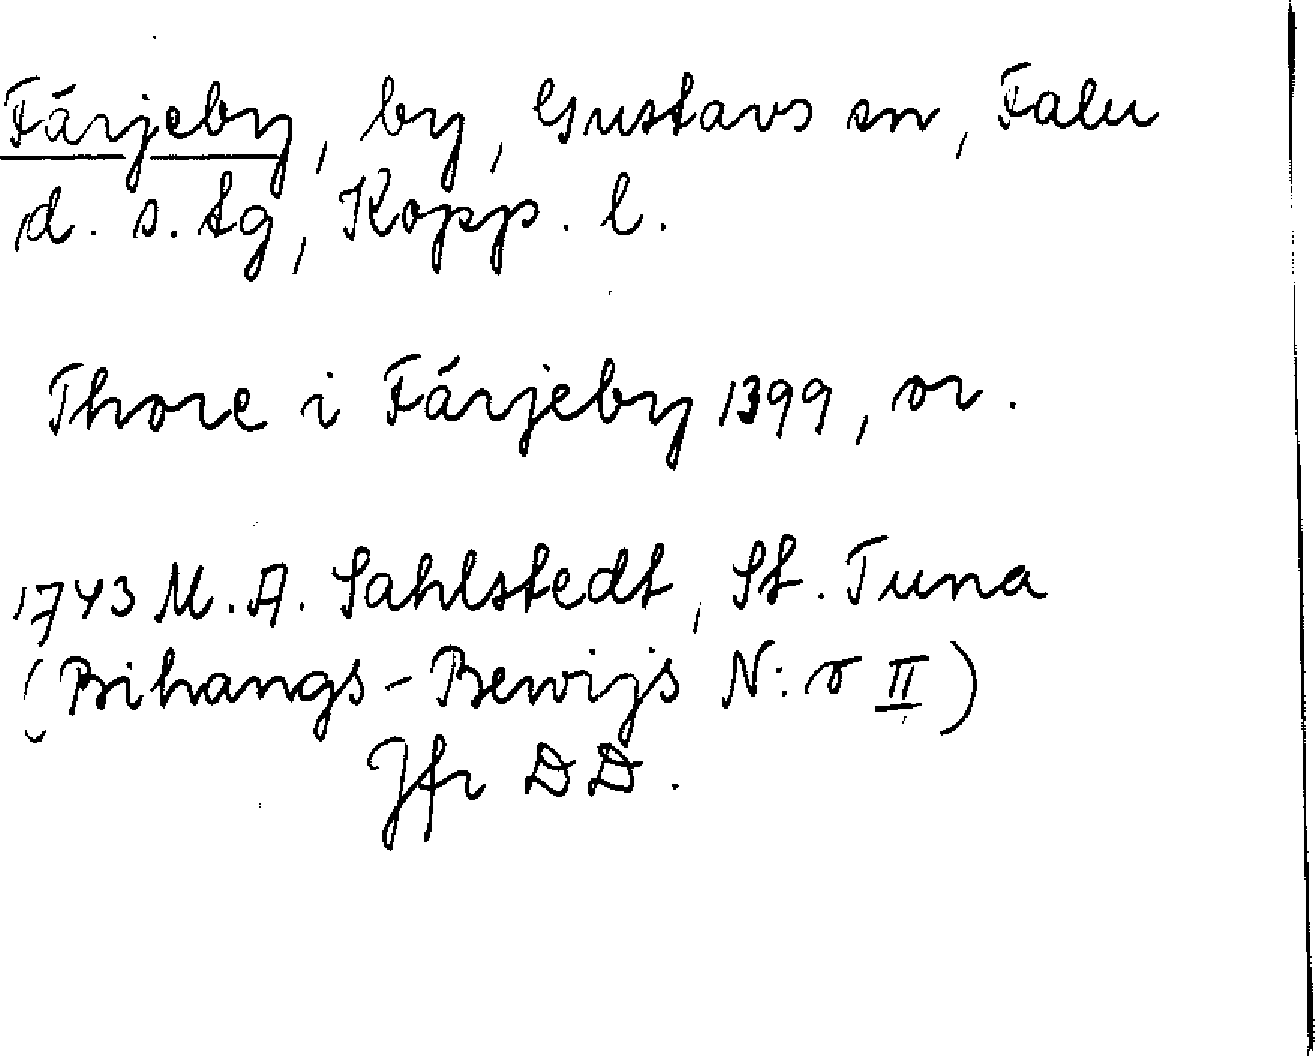 Färjeby, by, Gustavs sn, Falu
d. s. tg, Kopp. l.
Thore i Färjeby 1399, or.
1743 M. A. Sahlstedt, St. Tuna
(Bihangs-Bewijs N:r II)
Jfr DD.